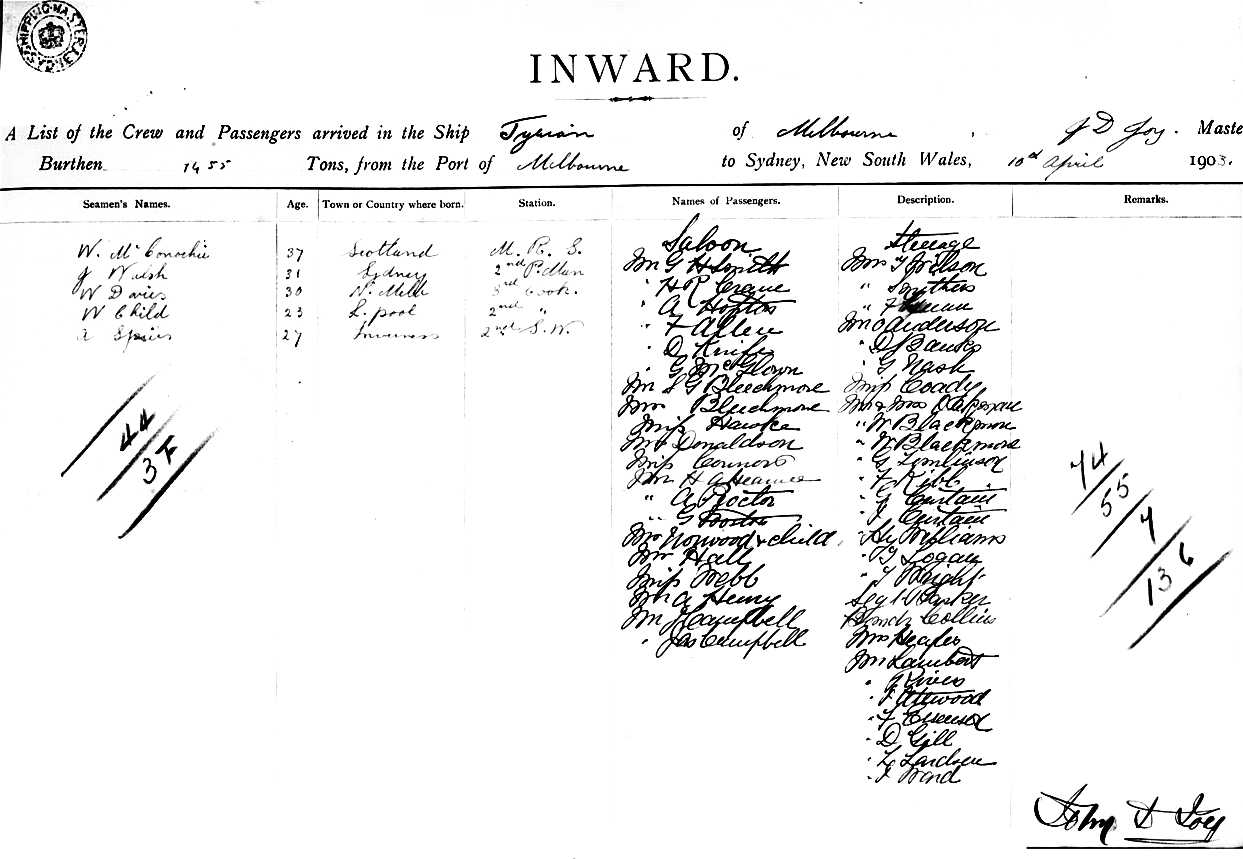 SHIPPING MASTER SYDNEY
INWARD.
A List of the Crew and Passengers arrived in the Ship Tyrian of Melbourne, J D Joy. Maste
Burthen 1455 Tons, from the Port of Melbourne to Sydney, New South Wales, 10th April 1903.
Seamen's Names. Age. Town or Country where born. Station. Names of Passengers. Description. Remarks.
W. McConochie 37 Scotland M. R. S.
J Walsh 31 Sydney 2nd P.Man
W Davies 30 N. Melb 3rd Cook.
W Child 23 L.pool 2nd "
A Spiers 27 Inverness 2nd S.W.
44
37
Saloon
Mr G H Smith
" H R Crane
" A Hopton
" F Allen
" D Knife
" G McGlown
Mr S G Bleechmore
Mrs Bleechmore
Miss Hawke
Mrs Donaldson
Miss Connors
Mr H A
" A Proctor
" G Boston
Mrs Norwood & child
Mrs Hall
Miss Webb
Mr A Henry
Mr J Campbell
" Jas Campbell
Steerage
Mrs T Wilson
" Smithers
" F
Mr O Anderson
" D J Banks
" G Nash
Miss Coady
Mr & Mrs
" W Blackmore
" W Blackmore
" G Tomlinson
" F Kibb
" G Curtain
" J Curtain
" Hy Williams
" T G Logan
" T Wright
Sergt W Parker
Collins
Mrs Heafer
Mr Lambert
" J Rives
" F Attwood
" F
" D Gill
" L
" J Ward
74
55
7
136
John D Joy